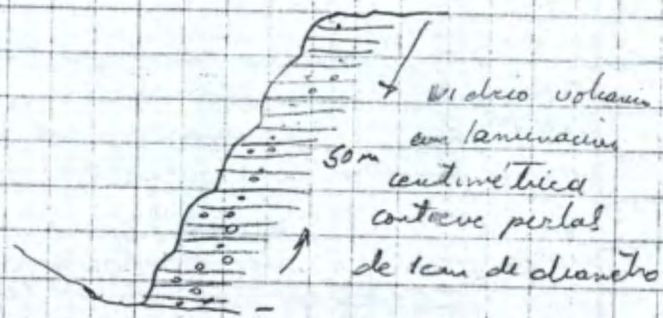 vidrio volcanico
con laminacion
50 m
centimétrica
contiene perlas
de 1cm de diametro